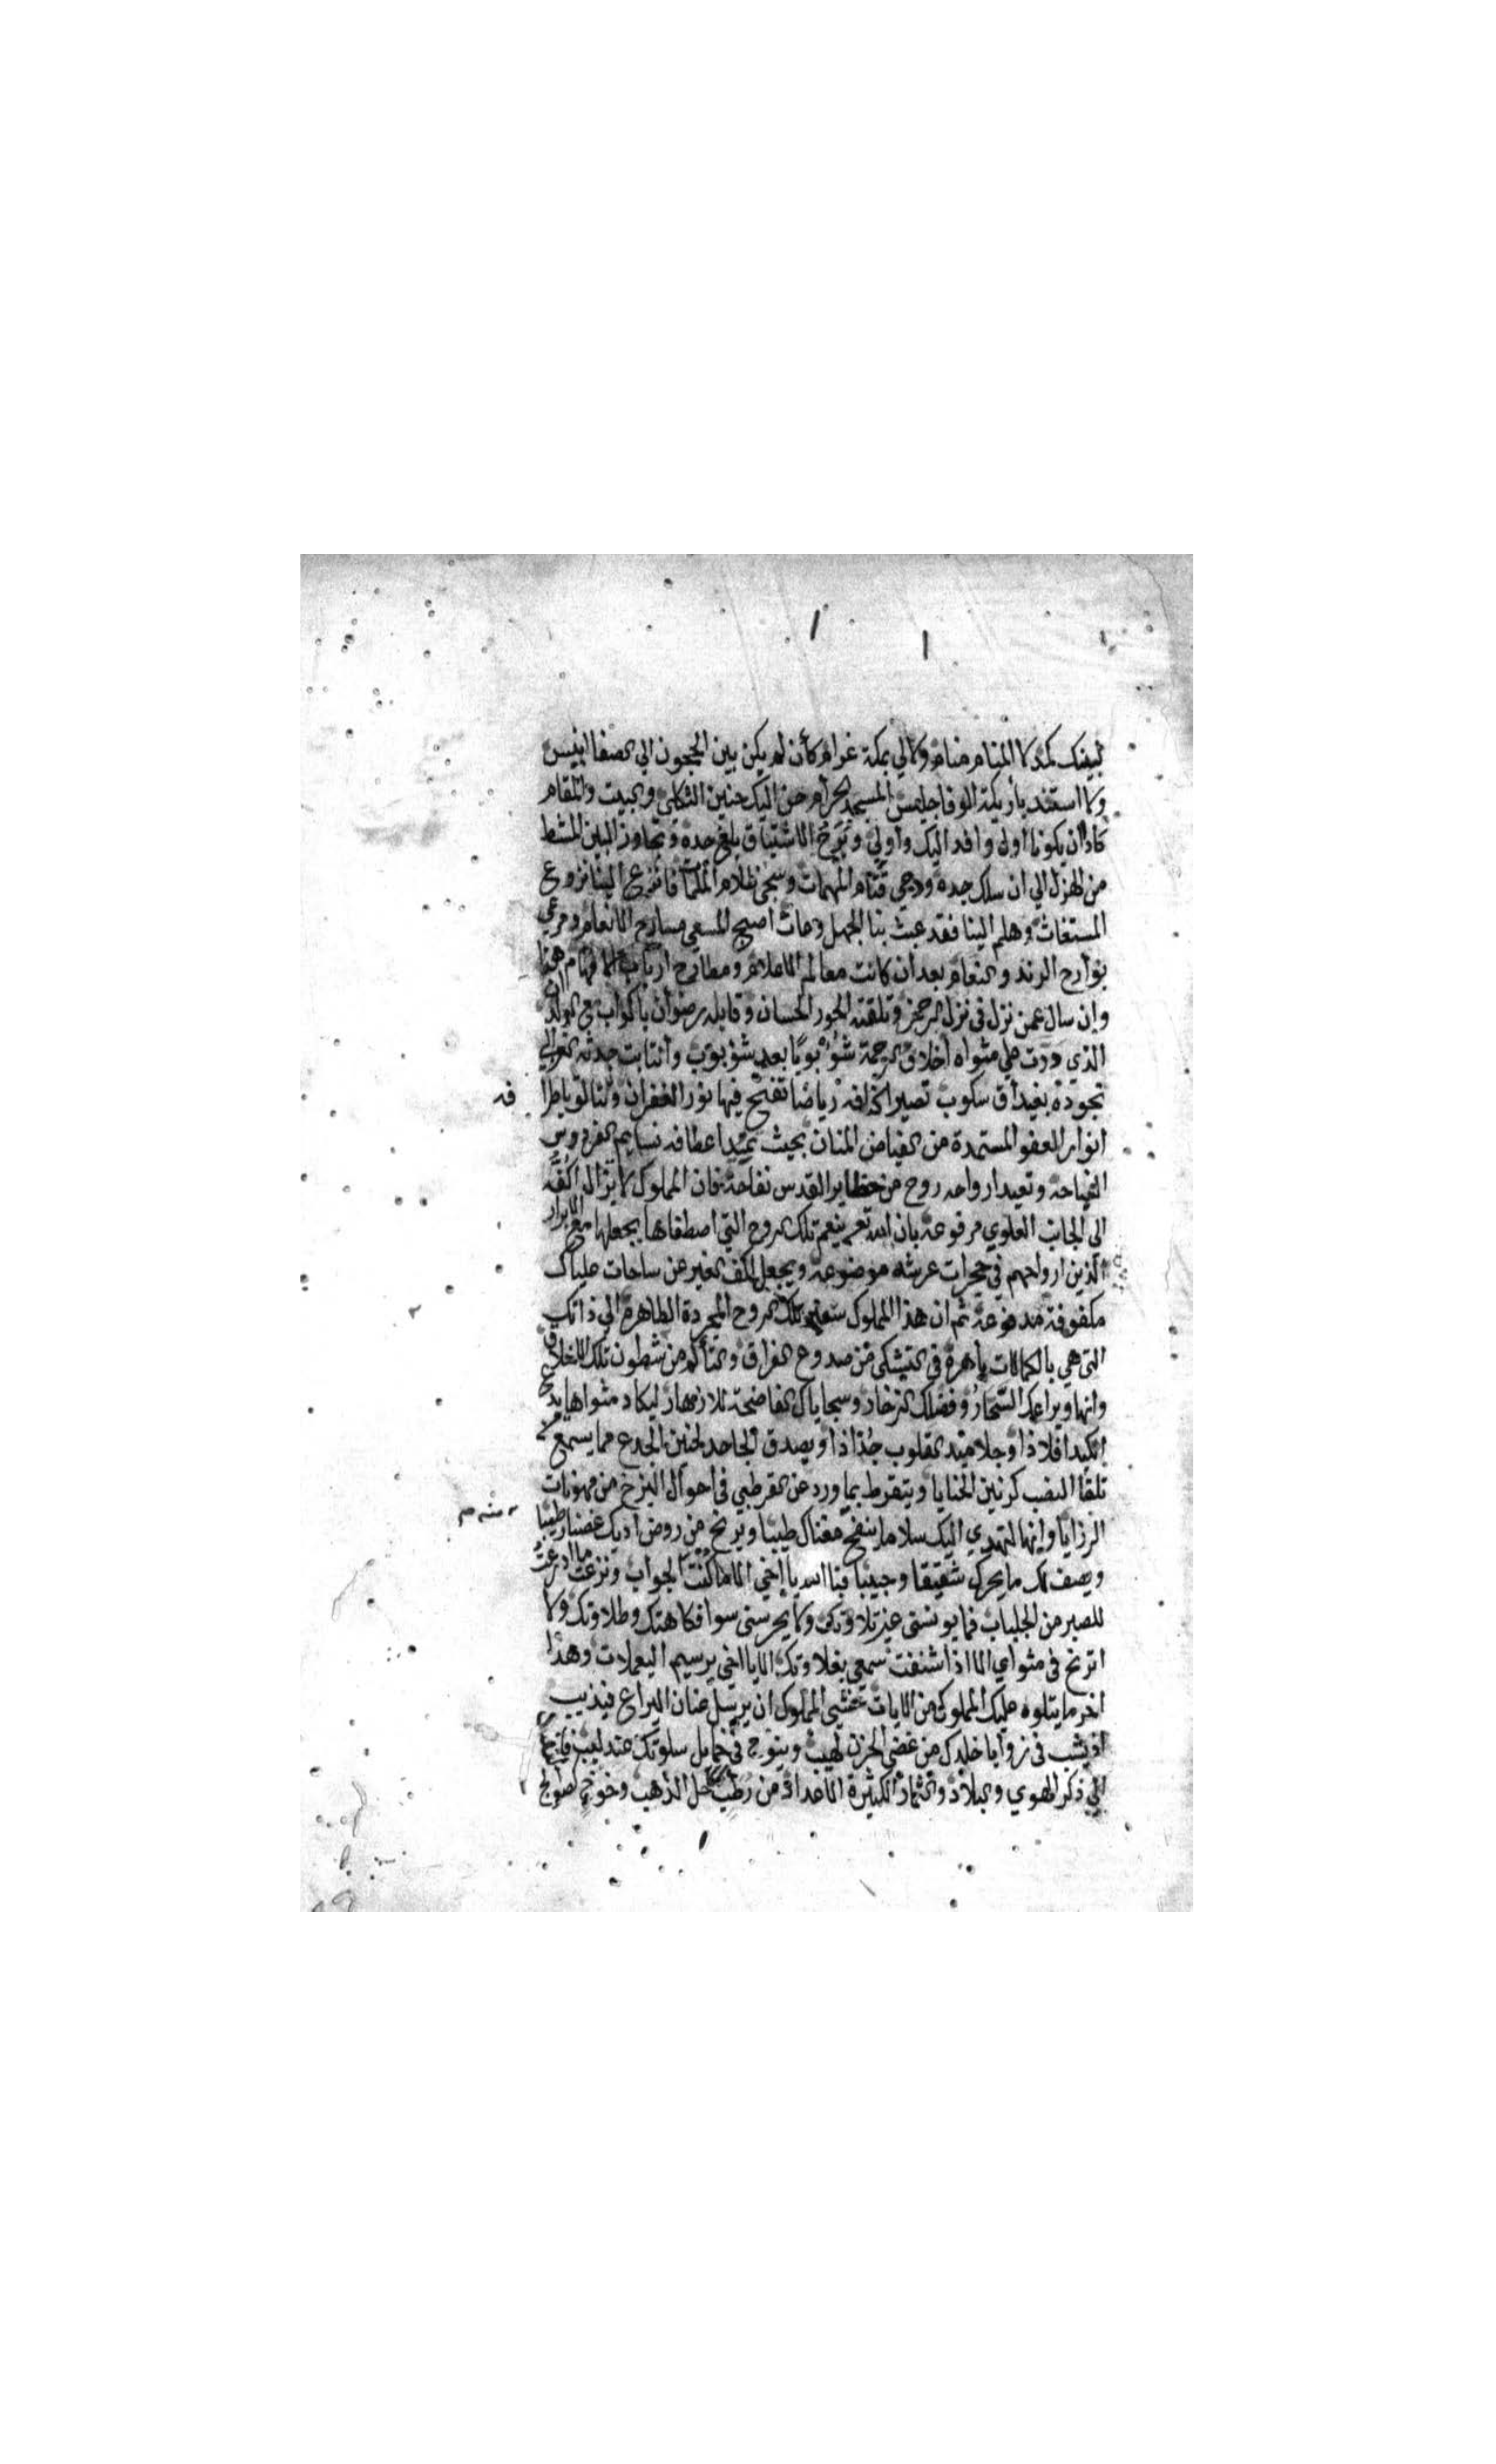 لبينك بمكة لا المنام منام ولا لي بمكة غرام كأن لم يكن بين الحجون الي الصفا انيس
ولا استند بأريكة الوفا جليس المسجد الحرام حن اليك حنين الثكلي والبيت والمقام
كاد ان يكونا اول وافد اليك واولي وبرح الاشتياق بلغ حده وتجاوز البين المشط
من الهزل الي ان سلك جده ودجي قتام المهمات وسجى ظلام الملمات فانزع الينا نزوع
المستغاث وهلم الينا فقد عبث بنا الجهل وعاث اصبح المسعي مسارح الانعام ومرعي
بوارح الرند والنعام بعد ان كانت معالم الاعلام ومطارح ارباب الافهام هذا
وان سال عمن نزل في نزل الرحمن وتلقته الحور الحسان وقابله رضوان باكواب مع الولدان
الذي درت علي مثواه اخلاق الرحمة شؤبوبا بعد شؤبوب وانتابت جدثه الغوالي
تجوده بغيداق سكوب تصير اكنافه رياضا تفتح فيها نور الغفران وتلألؤ باطرافه
انوار العفو المستمدة من الفياض المنان بحيث تميد اعطافه نسايم الفردوس
الفياحة وتعيد ارواحه روح من حظاير القدس نفاحة فان المملوك لا يزال اكفه
الي الجاب العلوي مرفوعة بان الله تعم ينعم تلك الروح التي اصطفاها بجعلها مع الابرار
الذين ارواحهم في حجرات عرشه موضوعة ويجعل اكف الغير عن ساحات علياك
مكفوفة مدفوعة ثم ان هذا المملوك تلك الروح المجردة الطاهرة الي ذاتك
التي هي بالكمالات باهرة في التشكي من صدوع الفراق والتألم من شطون تلك الاخلاق
وانها ويراعك السحار وفضلك الزخار وسجاياك الفاضحة للازهار ليكاد مثواها يدع
الكبد افلاذا وجلاميد القلوب جذاذا ويصدق الجاحد لحنين الجذع مما يسمع من
تلقا النصب كرنين الحنايا ويتقرط بما ورد عن القرطبي في احوال البرزخ من مهونات
الرزايا وانها لتهدي اليك سلاما ينفح مغناك طيبا ويرنح من روض اديك غصنا رطيبا
ويصف لك ما يحرك شقيقا وحبيبا فبا الله يا اخي الا ما كنت الجواب ونزعت ما ادرعت
للصبر من الجلباب فما يونسني غير تلاوتك ولا يحرسني سوا فكاهتك وطلاوتك ولا
اترنح في مثواي الا اذا شنفت سمعي بغلاوتك الا يا اخي يرسيم اليعملات وهذا
اخر ما يتلوه عليك المملوك من الايات خشي المملوك ان يرسل عنان اليراع فيذيب
اذ يشب في زوايا خلدك من غضى الحزن لهيب وينوح في خمايل سلوتك عندليب
الي ذكر الهوي والبلاد والثماد الكثيرة الاعداد من رطب كحل الذهب وخوخ كصوالج
فه
منه م